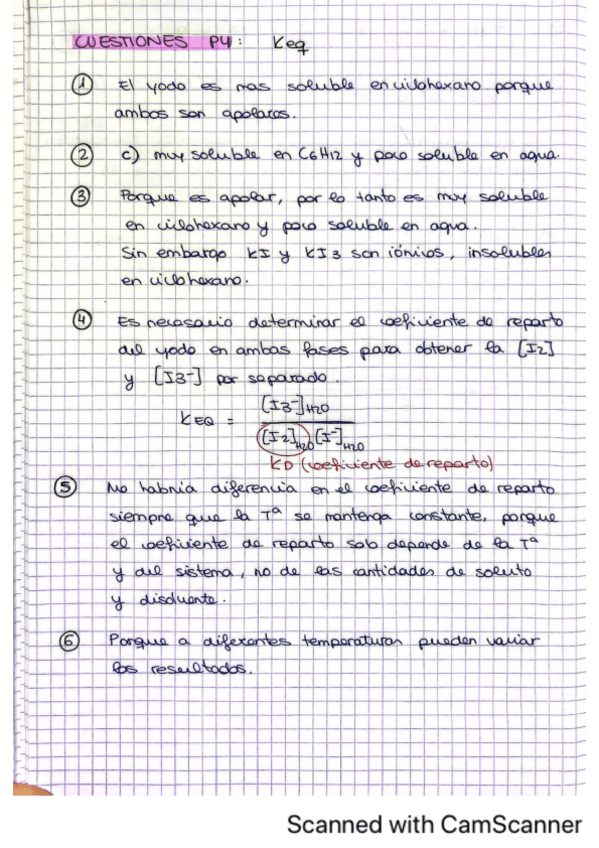 CUESTIONES P4: Keq
① El yodo es mas soluble en ciclohexano porque
ambos son apolares.
② c) muy soluble en C6H12 y poco soluble en agua.
③ Porque es apolar, por lo tanto es muy soluble
en ciclohexano y poco soluble en agua.
Sin embargo KI y KI3 son iónicos, insolubles
en ciclohexano.
④ Es necesario determinar el coeficiente de reparto
del yodo en ambas fases para obtener la [I2]
y [I3-] por separado.
KEQ = [I3-]H2O / [I2]H2O [I-]H2O
KD (coeficiente de reparto)
⑤ No habría diferencia en el coeficiente de reparto
siempre que la Tª se mantenga constante, porque
el coeficiente de reparto solo depende de la Tª
y del sistema, no de las cantidades de soluto
y disolvente.
⑥ Porque a diferentes temperaturas pueden variar
los resultados.
Scanned with CamScanner